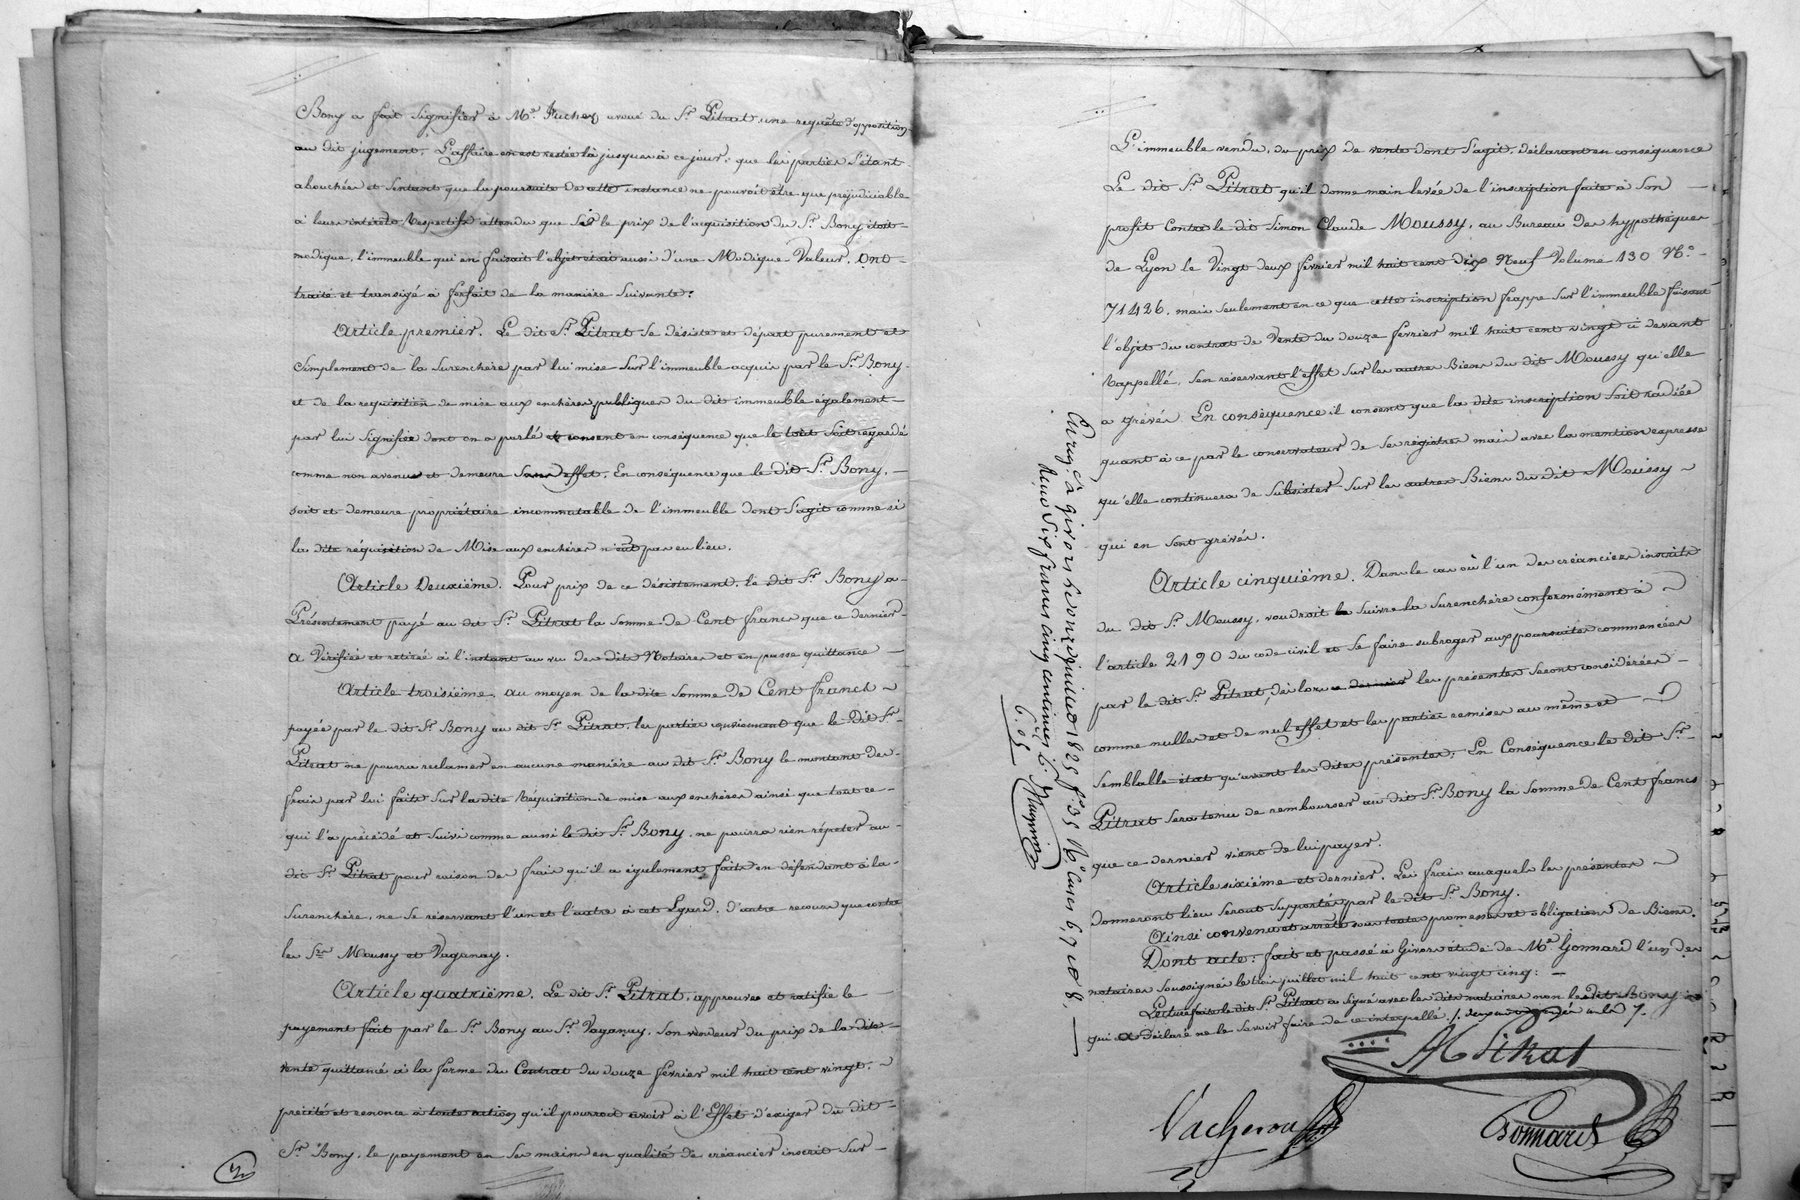 Bony a fait signifier à Me. Fuchez avoué du Sr. Pitrat une requête d'opposition
au dit jugement. L'affaire en est restée là jusques à ce jour; que les parties s'étant
abouchées et sentant que la poursuite de cette instance ne pouvoit être que préjudiciable
à leurs intérêts respectifs attendu que si le prix de l'acquisition du Sr. Bony étoit
modique, l'immeuble qui en faisait l'objet était aussi d'une Modique Valeur. Ont
traité et transigé à forfait de la manière suivante:
Article premier. Le dit Sr. Pitrat se désiste et départ purement et
simplement de la surenchère par lui mise sur l'immeuble acquis par le Sr. Bony
et de la requisition de mise aux enchères publiques du dit immeuble également
par lui signifiée dont on a parlé et consent en conséquence que le tout soit regardé
comme non avenu et demeure sans effet. En conséquence que le dit Sr. Bony,
soit et demeure propriétaire incommutable de l'immeuble dont s'agit comme si
la dite réquisition de Mise aux enchères n'eut pas eu lieu.
Article Deuxième. Pour prix de ce désistement, le dit Sr. Bony a
Présentement payé au dit Sr. Pitrat la somme de Cent francs que ce dernier
a Vérifiée et retirée à l'instant au vu des dits Notaires et en passe quittance
Article troisième. au moyen de la dite somme de Cent francs
payée par le dit Sr. Bony au dit Sr. Pitrat, les parties conviennent que le Dit Sr.
Pitrat ne pourra réclamer en aucune manière au dit Sr. Bony le montant des
frais par lui faits sur la dite Réquisition de mise aux enchères ainsi que tout ce
qui l'a précédé et suivi comme aussi le dit Sr. Bony, ne pourra rien répéter au
dit Sr. Pitrat pour raison des frais qu'il a également faits en défendant à la
surenchère, ne se réservant l'un et l'autre à cet Egard, d'autre recours que contre
les Srs. Moussy et Vaganay.
Article quatrième. Le dit Sr. Pitrat, approuve et ratifie le
payement fait par le Sr. Bony au Sr. Vaganay, son vendeur du prix de la dite
vente quittancé à la forme du Contrat du douze février mil huit cent vingt,
précité et renonce à toute action, qu'il pourroit avoir à l'Effet d'exiger du dit
Sr. Bony, le payement en ses mains en qualité de créancier inscrit sur
L'immeuble vendu, du prix de vente dont s'agit, déclarant en conséquence
Le dit Sr. Pitrat qu'il donne main levée de l'inscription faite à son
profit Contre le dit Simon Claude Moussy, au Bureau des hypothèques
de Lyon le Vingt deux février mil huit cent dix Neuf Volume 130 No.
71426, mais seulement en ce que cette inscription frappe sur l'immeuble faisant
l'objet du contrat de vente du douze février mil huit cent vingt ci devant
rappellé, s'en réservant l'effet sur les autres Biens du dit Moussy qu'elle
a grévés En conséquence il consent que la dite inscription soit radiée
quant à ce par le conservateur de ses régistres mais avec la mention expresse
qu'elle continuera de subsister sur les autres Biens du dit Moussy
qui en sont grévés.
Article cinquième. Dans le cas où l'un des créanciers inscrits
du dit Sr. Moussy, voudroit suivre la surenchère conformément à
l'article 2190 du code civil et se faire subroger aux poursuites commencées
par le dit Sr. Pitrat, dès lors les présentes seront considérées
comme nulles et de nul effet et les parties remises au même et
semblable état qu'avant les dites présentes, En Conséquence le dit Sr.
Pitrat sera tenu de rembourser au dit Sr. Bony la somme de Cent francs
que ce dernier vient de lui payer.
Article sixième et dernier. Les frais auxquels les présentes
donneront lieu seront supportés par le dit Sr. Bony.
Ainsi convenu et arrêté sous toutes promesses et obligations de Biens.
Dont acte: fait et passé à Givors étude de Me. Gonnard l'un des
notaires soussignés le trois juillet mil huit cent vingt cinq:
Lecture faite le dit Sr. Pitrat a signé avec les dits notaires non le dit Bony
qui a déclaré ne le savoir faire de ce interpellé.
Pitrat
Vacheron
Gonnard
Enreg. à givors le onze juillet 1825 fo. 35 Vo. Cases 6, 7 et 8.
Reçu six francs cinq centimes
6. 05